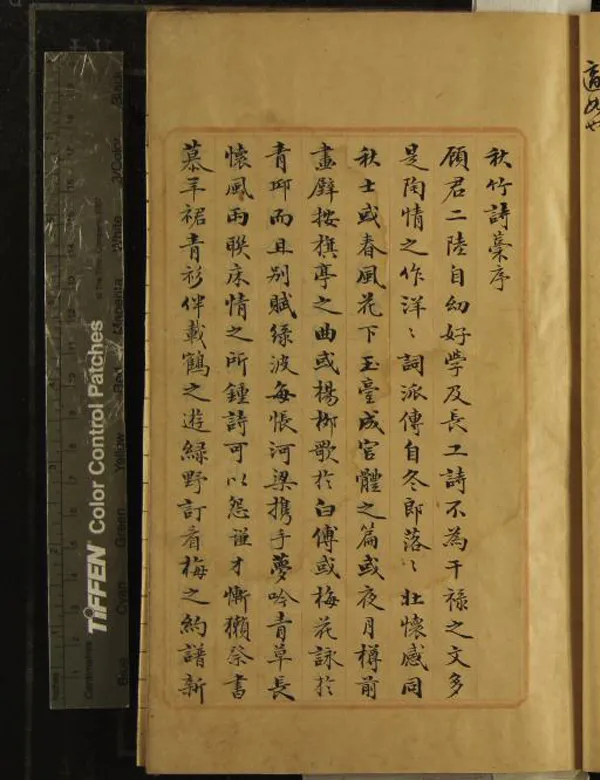 秋竹詩藁序
顧君二陸自幼好學及長工詩不為干祿之文多
是陶情之作洋〻詞派傳自冬郎落〻壯懷感同
秋士或春風花下玉臺成宮體之篇或夜月樽前
畫壁按旗亭之曲或楊柳歌於白傅或梅花詠於
青邱而且別賦綠波每悵河梁攜手夢吟青草長
懷風雨聯床情之所鍾詩可以怨謹才慚獺祭書
慕羊裙青衫伴載鶴之遊綠野訂看梅之約譜新
TIFFEN® Color Control Patches
Blue
Cyan
Green
Yellow
Red
Magenta
White
3/Color
Black